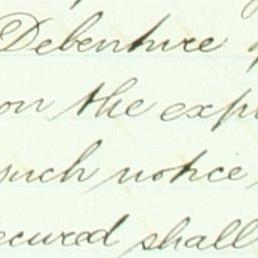 Debenture
on the exp
such notice
ecured shall